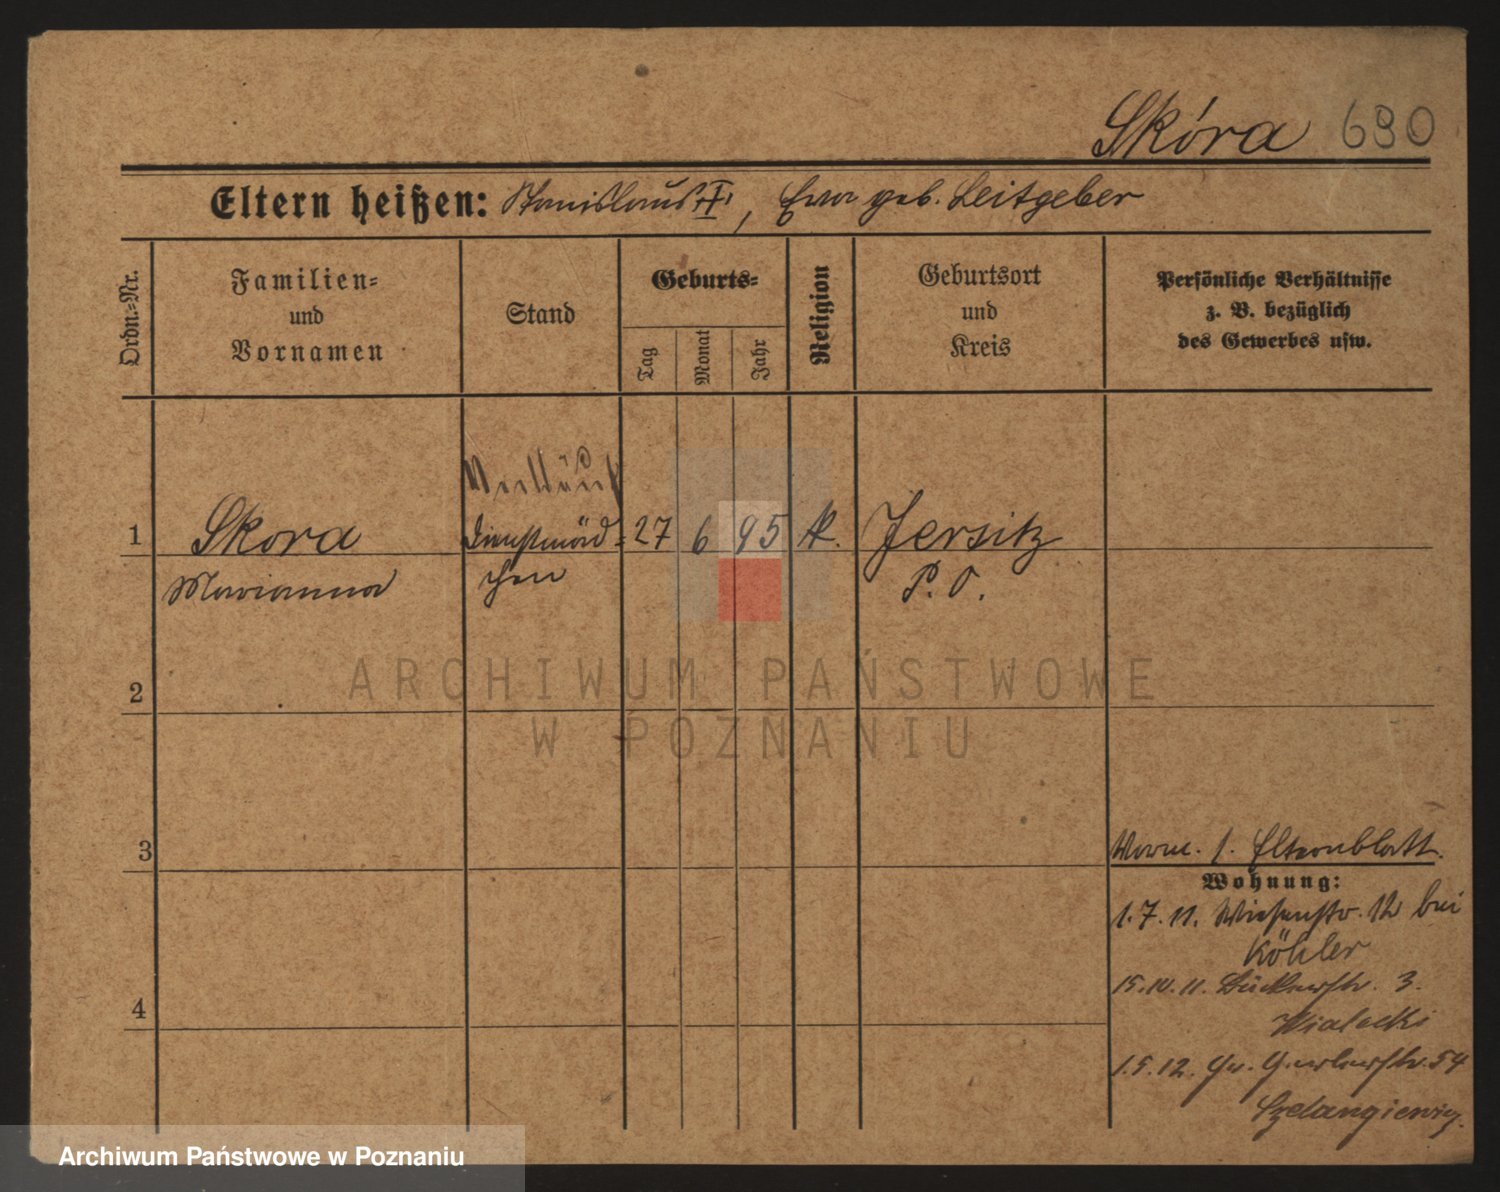 Skóra 690
Eltern heißen: Stanislaus II, Eva geb. Leitgeber
Ordn.-Nr.
Familien-
und
Vornamen
Stand
Geburts-
Tag
Monat
Jahr
Religion
Geburtsort
und
Kreis
Persönliche Verhältnisse
z. B. bezüglich
des Gewerbes usw.
1 Skora Dienstmäd- 27 6 95 K. Jersitz
Marianna chen P. O.
ARCHIWUM PAŃSTWOWE
W POZNANIU
2
3
4
Elternblatt.
Wohnung:
1.7.11. Wiesenstr. 12 bei
Köhler
15.10.11. Bäckerstr. 3.
Wialecki
1.5.12. Gr. Gerberstr. 54
Szelangiewicz.
Archiwum Państwowe w Poznaniu